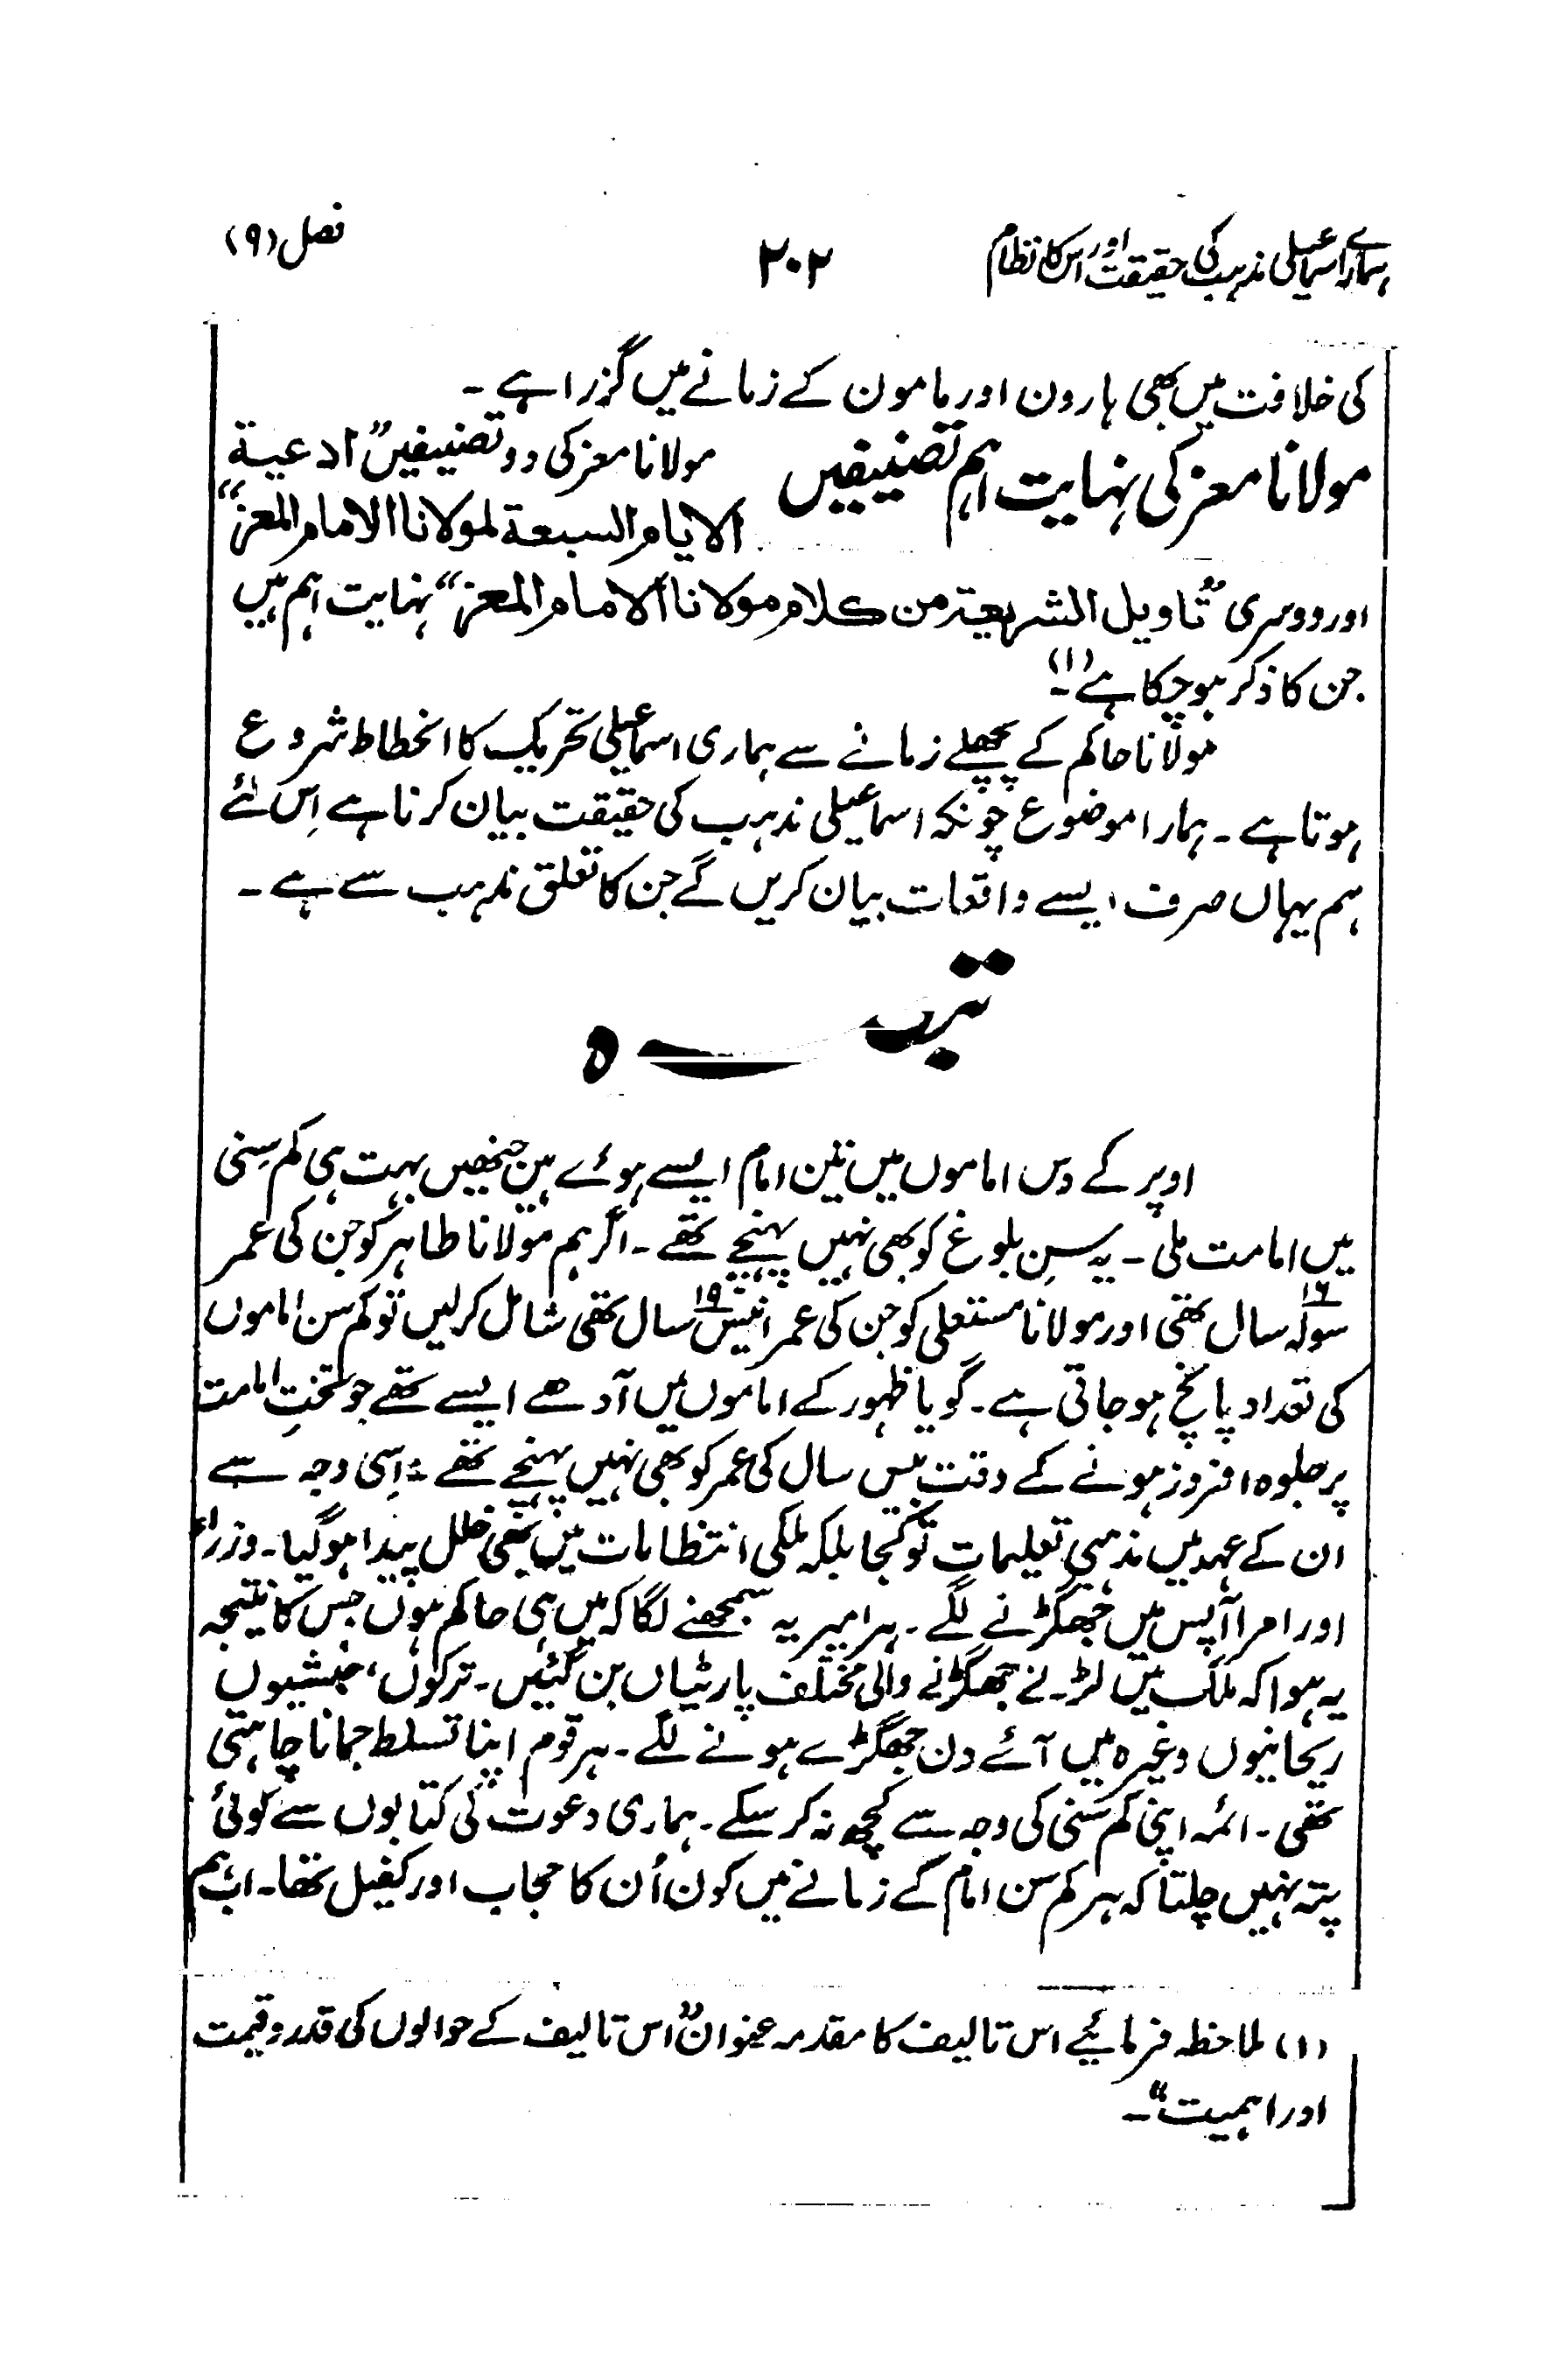 ہمارے اسماعیلی مذہب کی حقیقت اور اس کا نظام
۲۰۲
فصل (۹)
کی خلافت میں بھی ہارون اور مامون کے زمانے میں گزرا ہے ۔
مولانا معز کی نہایت اہم تصنیفیں
مولانا معز کی دو تصنیفیں ”ادعیۃ
الایام السبعۃ لمولانا الامام المعز“
اور دوسری ”تاویل الشریعۃ من کلام مولانا الامام المعز“ نہایت اہم ہیں
جن کا ذکر ہو چکا ہے (۱) ۔
مولانا حاکم کے پچھلے زمانے سے ہماری اسماعیلی تحریک کا انحطاط شروع
ہوتا ہے ۔ ہمارا موضوع چونکہ اسماعیلی مذہب کی حقیقت بیان کرنا ہے اِس لئے
ہم یہاں صرف ایسے واقعات بیان کریں گے جن کا تعلق مذہب سے ہے ۔
تبصرہ
اوپر کے دس اماموں میں تین امام ایسے ہوئے ہیں جنھیں بہت ہی کم سِنی
میں امامت ملی ۔ یہ سنِ بلوغ کو بھی نہیں پہنچے تھے ۔ اگر ہم مولانا طاہر کو جن کی عمر
سولہ ۱۶ سال تھی اور مولانا مستعلی کو جن کی عمر انیس ۱۹ سال تھی شامل کرلیں تو کم سن اماموں
کی تعداد پانچ ہو جاتی ہے ۔ گویا ظہور کے اماموں میں آدھے ایسے تھے جو تختِ امامت
پر جلوہ افروز ہونے کے وقت بیس سال کی عمر کو بھی نہیں پہنچے تھے ۔ اِسی وجہ سے
ان کے عہد میں مذہبی تعلیمات تو کجا بلکہ ملکی انتظامات میں بھی خلل پیدا ہوگیا ۔ وزراء
اور امرا آپس میں جھگڑنے لگے ۔ ہر امیر یہ سمجھنے لگا کہ میں ہی حاکم ہوں جس کا نتیجہ
یہ ہوا کہ ملک میں لڑنے جھگڑنے والی مختلف پارٹیاں بن گئیں ۔ ترکوں، حبشیوں
ریحانیوں وغیرہ میں آئے دن جھگڑے ہونے لگے ۔ ہر قوم اپنا تسلط جمانا چاہتی
تھی ۔ ائمہ اپنی کم سنی کی وجہ سے کچھ نہ کر سکے ۔ ہماری دعوت کی کتابوں سے کوئی
پتہ نہیں چلتا کہ ہر کم سن امام کے زمانے میں کون اُن کا حجاب اور کفیل تھا ۔ اب ہم
(۱) ملاحظہ فرمائیے اس تالیف کا مقدمہ عنوان ”اس تالیف کے حوالوں کی قدر و قیمت
اور اہمیت“ ۔